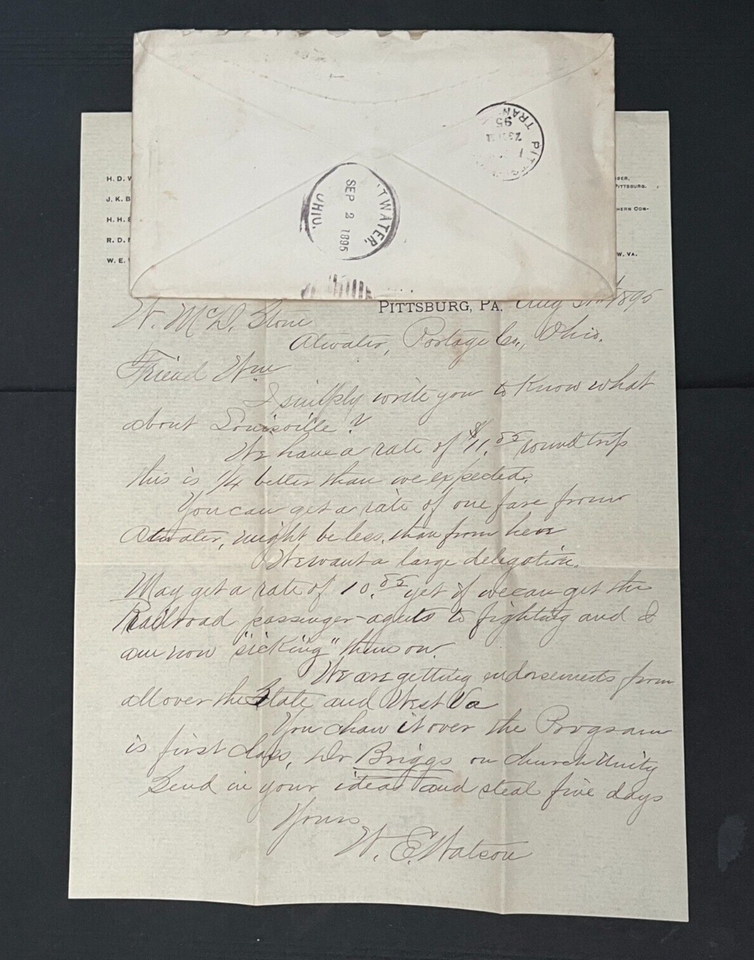 PITTS
TRAN
1
95
ATWATER,
SEP 2 1895
OHIO.
H. D. W
J. K. B
H. H.
R. D.
W. E.
PITTSBURG.
W. VA.
PITTSBURG, PA. Aug 31st 1895
W. McD. Stone
Atwater, Portage Co., Ohio.
Friend Wm
I simply write you to Know what
about Louisville?
We have a rate of $11.85 round trip
this is 1/4 better than we expected.
You can get a rate of one fare from
Atwater, might be less, than from here
We want a large delegation.
May get a rate of 10.85 yet if we can get the
Railroad passenger agents to fighting and I
am now "sicking" them on.
We are getting endorsements from
all over the State and West Va
You chaw it over the Program
is first class, Dr Briggs on church Unity
Send in your ideas and steal five days
Yours
W. E. Watson